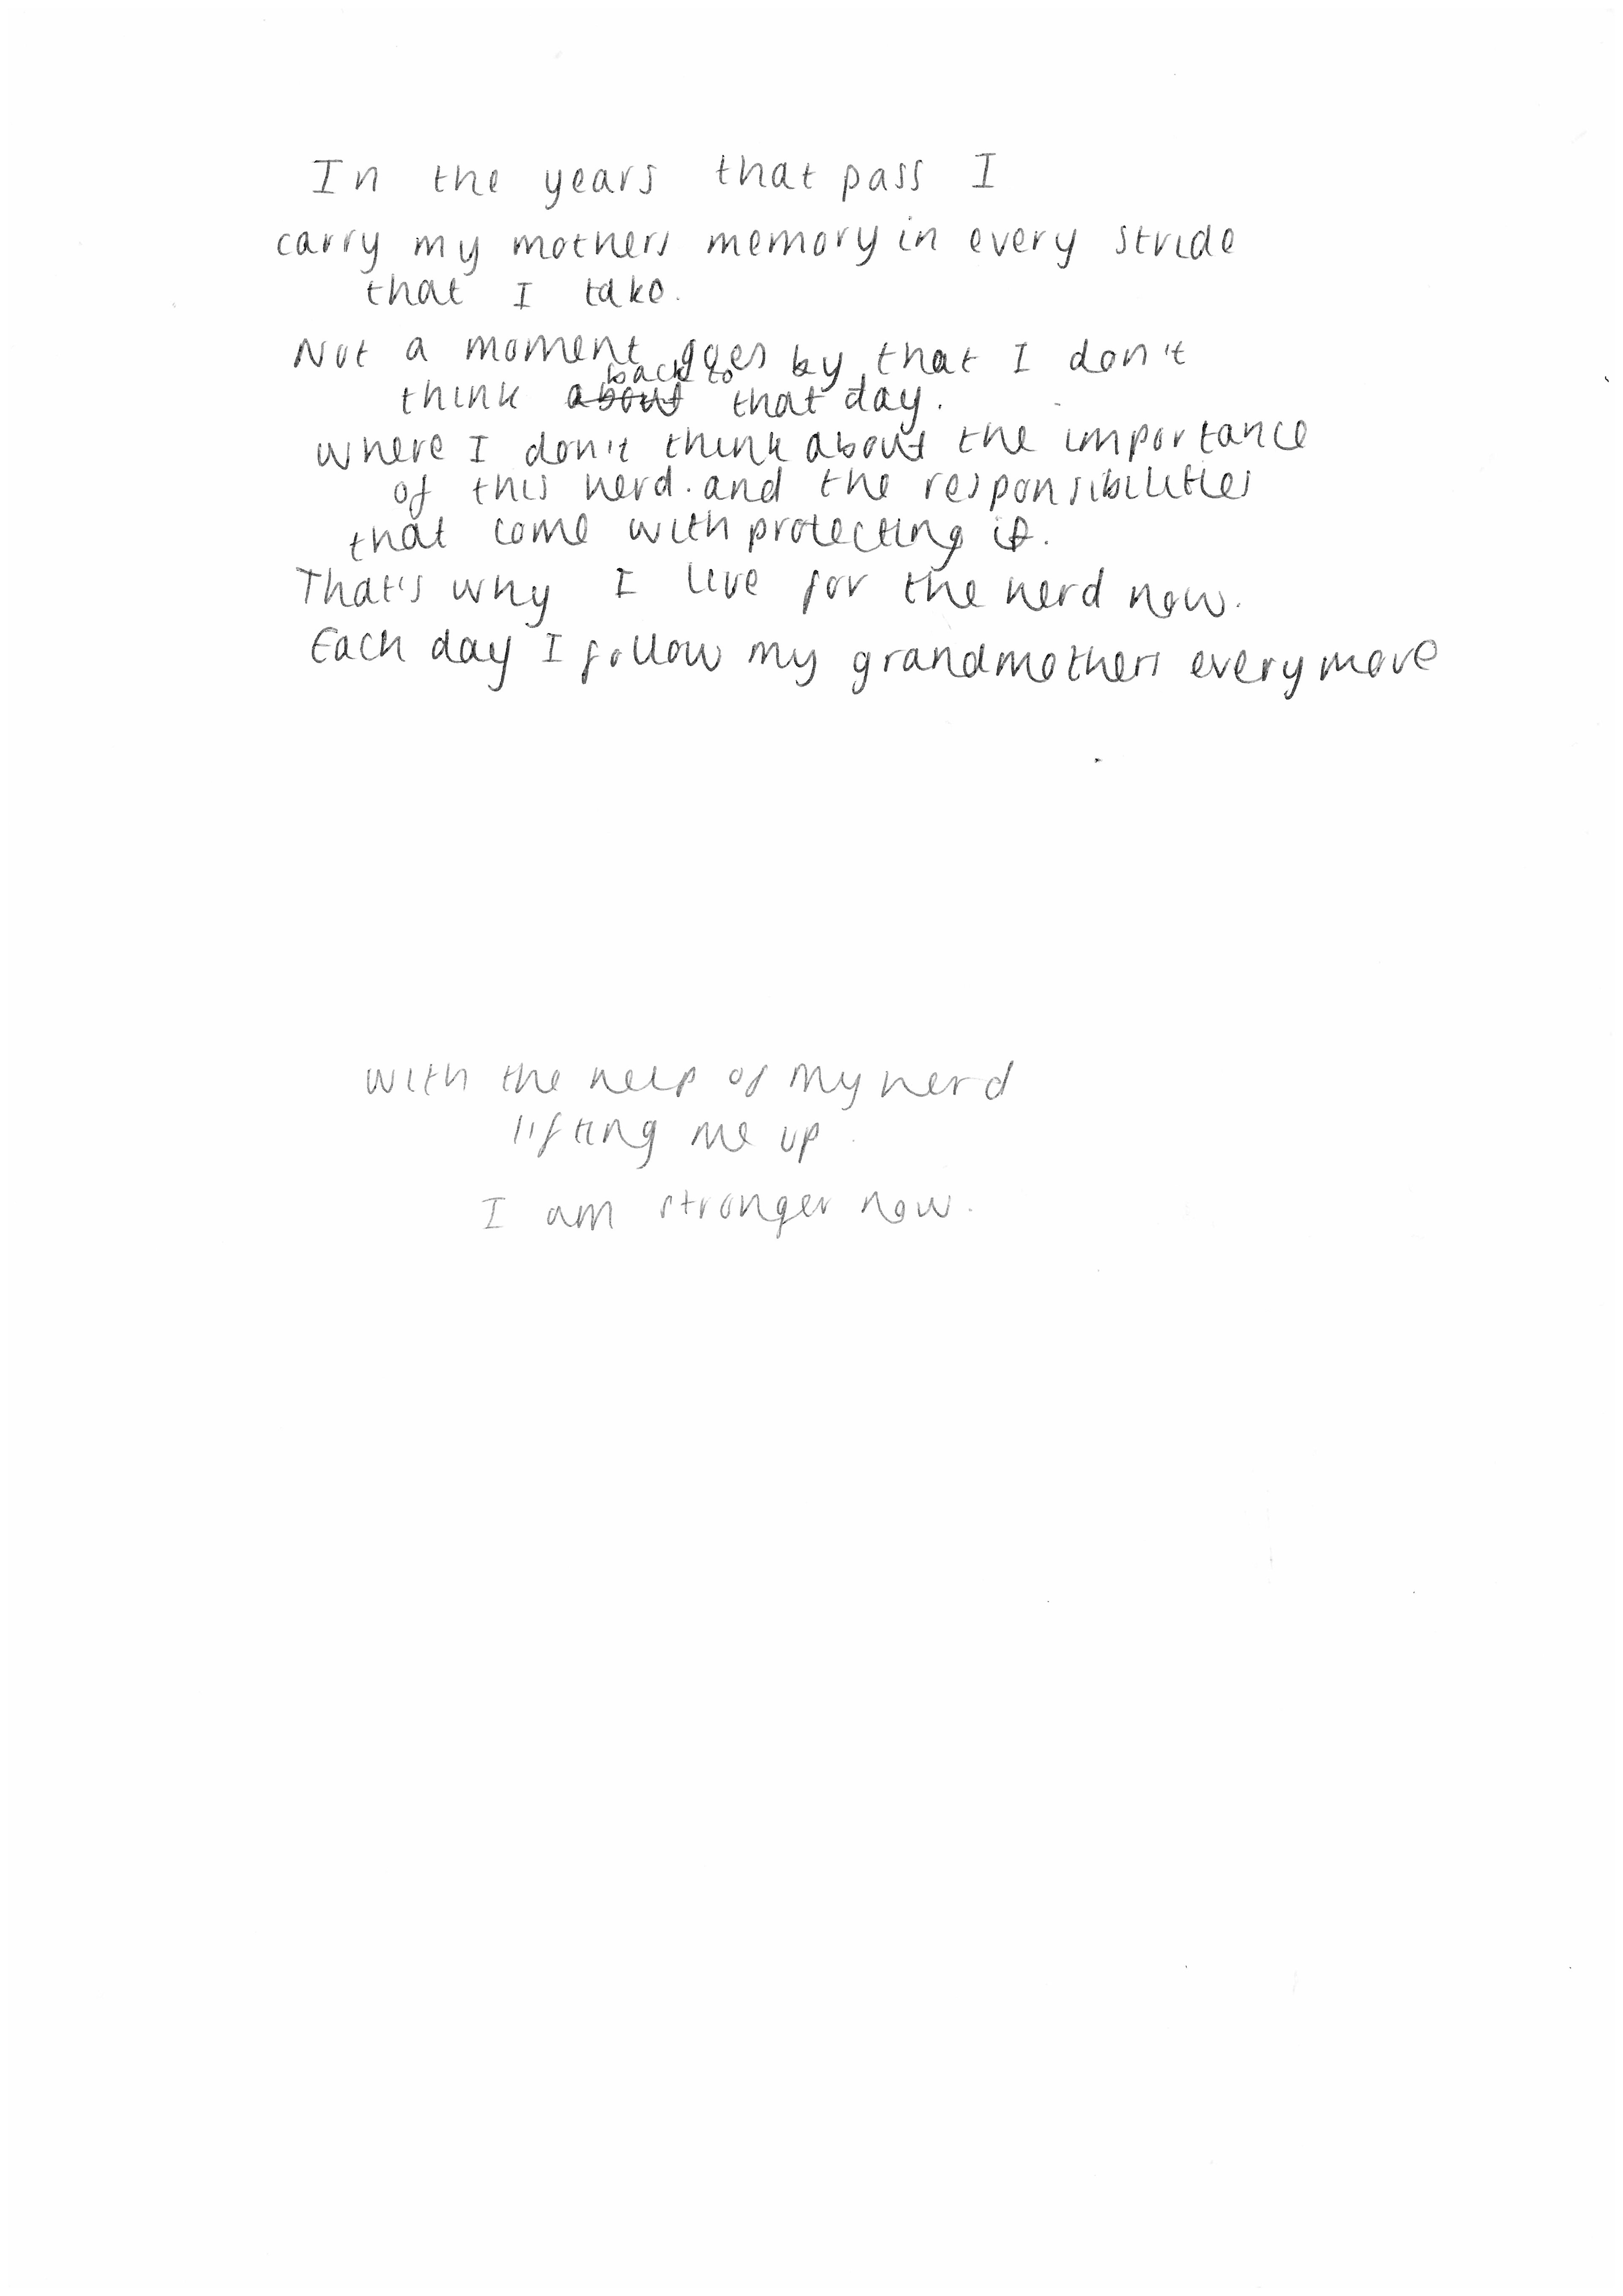 In the years that pass I
carry my mothers memory in every stride
that I take.
Not a moment goes by that I don't
back to
think about that day.
where I don't think about the importance
of this herd. and the responsibilities
that come with protecting it.
That's why I live for the herd now.
Each day I follow my grandmothers every move
with the help of my herd
lifting me up.
I am stronger now.